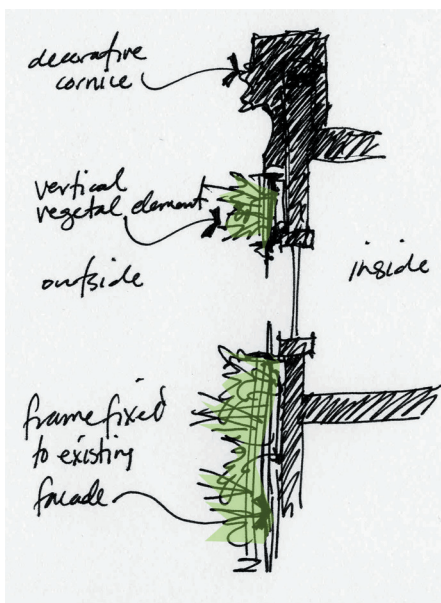 decorative
cornice
vertical
vegetal element
outside
inside
frame fixed
to existing
facade